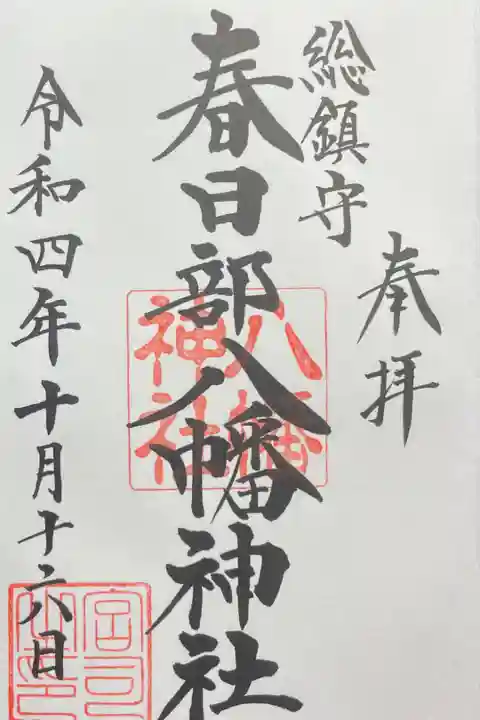 奉拝
総鎮守
春日部八幡神社
八幡
神社
令和四年十月十六日
宮司